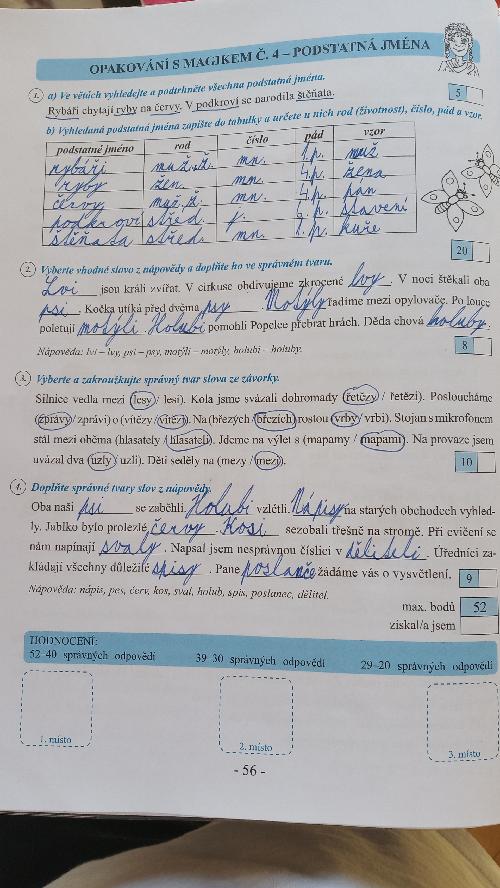 OPAKOVÁNÍ S MAGIKEM Č. 4 – PODSTATNÁ JMÉNA
1. a) Ve větách vyhledejte a podtrhněte všechna podstatná jména.
5
Rybáři chytají ryby na červy. V podkroví se narodila štěňata.
b) Vyhledaná podstatná jména zapište do tabulky a určete u nich rod (životnost), číslo, pád a vzor.
podstatné jméno rod číslo pád vzor
rybáři muž. ž. mn. 1.p. muž
ryby žen. mn. 4.p. žena
červy muž. ž. mn. 4.p. pán
podkroví střed. j. p. stavení
štěňata střed. mn. 1.p. kuře
20
2. Vyberte vhodné slovo z nápovědy a doplňte ho ve správném tvaru.
Lvi jsou králi zvířat. V cirkuse obdivujeme zkrocené lvy. V noci štěkali oba
psi. Kočka utíká před dvěma psy. Motýly řadíme mezi opylovače. Po louce
poletují motýli. Holubi pomohli Popelce přebrat hrách. Děda chová holuby.
Nápověda: lvi – lvy, psi – psy, motýli – motýly, holubi – holuby.
8
3. Vyberte a zakroužkujte správný tvar slova ze závorky.
Silnice vedla mezi (lesy / lesi). Kola jsme svázali dohromady (řetězy / řetězi). Posloucháme
(zprávy / zprávi) o (vítězy / vítězi). Na (březych / březích) rostou (vrby / vrbi). Stojan s mikrofonem
stál mezi oběma (hlasately / hlasateli). Jdeme na výlet s (mapamy / mapami). Na provaze jsem
uvázal dva (uzly / uzli). Děti seděly na (mezy / mezi).
10
4. Doplňte správné tvary slov z nápovědy.
Oba naši psi se zaběhli. Holubi vzlétli. Nápisy na starých obchodech vyhledly. Jablko bylo prolezlé červy. Kosi sezobali třešně na stromě. Při cvičení se
nám napínají svaly. Napsal jsem nesprávnou číslici v děliteli. Úředníci zakládají všechny důležité spisy. Pane poslanče žádáme vás o vysvětlení.
9
Nápověda: nápis, pes, červ, kos, sval, holub, spis, poslanec, dělitel.
max. bodů 52
získal/a jsem
HODNOCENÍ:
52–40 správných odpovědí 39–30 správných odpovědí 29–20 správných odpovědí
1. místo 2. místo 3. místo
- 56 -